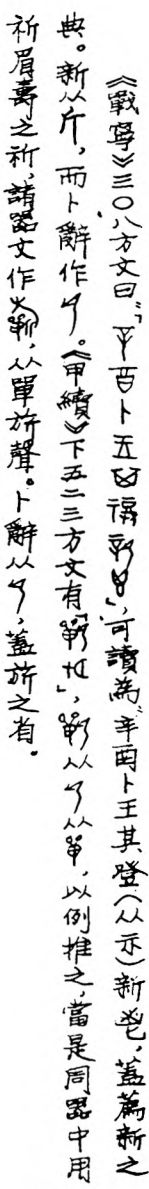 《戰寧》三〇八方文曰：「　酉卜五　　新　」，可讀為：辛酉卜王其登（从示）新鬯，蓋薦新之
典。新从斤，而卜辭作　。《甲續》下五二三方文有「　　」，　从　从單，以例推之，當是周器中用
祈眉壽之祈，諸器文作　，从單旂聲。卜辭从　，蓋旂之省。